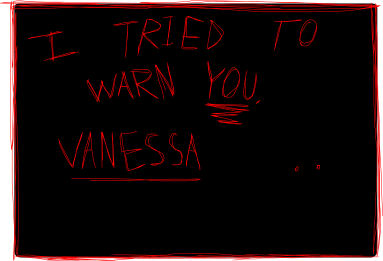 I TRIED TO
WARN YOU.
VANESSA ..